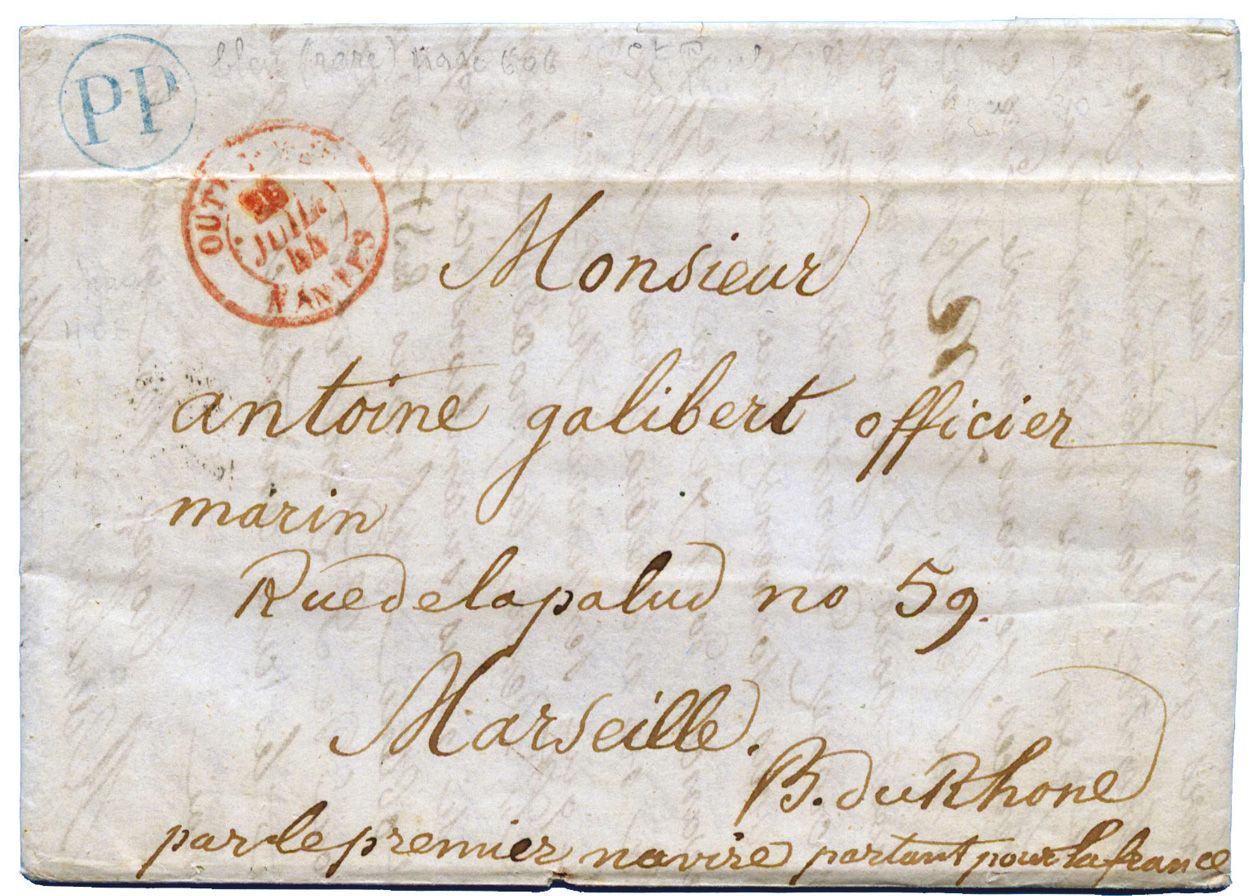 PP
bleu (rare)
JUIL
NANTES
Monsieur
antoine galibert officier
marin
Rue de la palud no 59.
Marseille.
B. du Rhone
par le premier navire partant pour la france